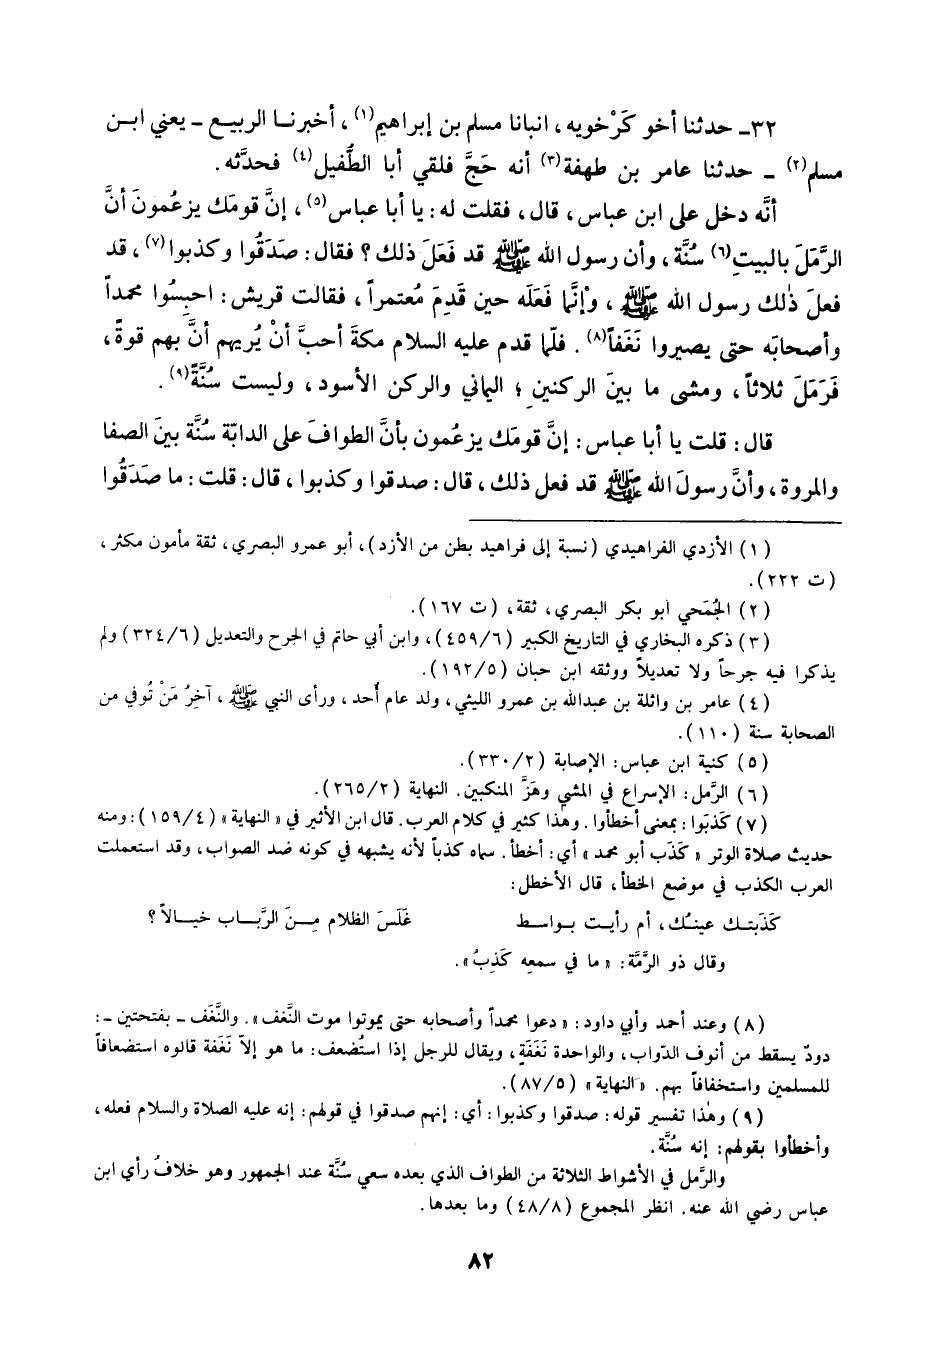 ٣٢ـ حدثنا أخو كَرْخويه، انبانا مسلم بن إبراهيم(١)، أخبرنـا الربيـع ـ يعني ابـن
مسلم(٢) ـ حدثنا عامر بن طهفة(٣) أنه حَجَّ فلقي أبا الطُّفيل(٤) فحدَّثه.
أنَّه دخل على ابن عباس، قال، فقلت له: يا أبا عباس(٥)، إنَّ قومَك يزعُمونَ أنَّ
الرَّمَلَ بالبيتِ(٦) سُنَّة، وأن رسول الله ﷺ قد فَعَلَ ذلك؟ فقال: صدَقُوا وكذبوا(٧)، قد
فعلَ ذٰلك رسول الله ﷺ، وإنَّما فَعَلَه حين قَدِمَ مُعتمراً، فقالت قريش: احبِسُوا محمداً
وأصحابَه حتى يصيروا نَغَفاً(٨). فلّما قدم عليه السلام مكةَ أحبَّ أنْ يُريهم أنَّ بهم قوةً،
فَرَمَلَ ثلاثاً، ومشى ما بينَ الركنينِ؛ اليماني والركن الأسود، وليست سُنَّةً(٩).
قال: قلت يا أبا عباس: إنَّ قومَك يزعُمون بأنَّ الطوافَ على الدابّة سُنَّة بينَ الصفا
والمروة، وأنَّ رسولَ الله ﷺ قد فعل ذلك، قال: صدقوا وكذبوا، قال: قلت: ما صدَقُوا
(١) الأزدي الفراهيدي (نسبة إلى فراهيد بطن من الأزد)، أبو عمرو البصري، ثقة مأمون مكثر،
(ت ٢٢٢).
(٢) الجُمَحي أبو بكر البصري، ثقة، (ت ١٦٧).
(٣) ذكره البخاري في التاريخ الكبير (٤٥٩/٦)، وابن أبي حاتم في الجرح والتعديل (٣٢٤/٦) ولم
يذكرا فيه جرحاً ولا تعديلاً ووثقه ابن حبان (١٩٢/٥).
(٤) عامر بن واثلة بن عبدالله بن عمرو الليثي، ولد عام أُحد، ورأى النبي ﷺ، آخِرُ مَنْ تُوفي من
الصحابة سنة (١١٠).
(٥) كنية ابن عباس: الإصابة (٣٣٠/٢).
(٦) الرَّمل: الإسراع في المشي وهَزَّ المنكبين. النهاية (٢٦٥/٢).
(٧) كَذَبَوا: بمعنى أخطأوا. وهذا كثير في كلام العرب. قال ابن الأثير في «النهاية» (١٥٩/٤): ومنه
حديث صلاة الوتر «كَذَب أبو محمد» أي: أخطأ. سماه كذباً لأنه يشبهه في كونه ضد الصواب، وقد استعملت
العرب الكذب في موضع الخطأ، قال الأخطل:
كَذَبتـك عينـُك، أم رأيـت بـواسـط غَلَسَ الظلام مِـنَ الرَّبـاب خيـالاً؟
وقال ذو الرَّمَّة: «ما في سمعِه كَذِبُ».
(٨) وعند أحمد وأبي داود: «دعوا محمداً وأصحابه حتى يموتوا موت النَّغف». والنَّغَف ـ بفتحتين ـ:
دودٌ يسقط من أنوف الدَّواب، والواحدة نَغَفَةٍ، ويقال للرجل إذا استُضعف: ما هو إلاّ نَغَفة قالوه استضعافاً
للمسلمين واستخفافاً بهم. «النهاية» (٨٧/٥).
(٩) وهٰذا تفسير قوله: صدقوا وكذبوا: أي: إنهم صدقوا في قولهم: إنه عليه الصلاة والسلام فعله،
وأخطأوا بقولهم: إنه سُنَّة.
والرَّمل في الأشواط الثلاثة من الطواف الذي بعده سعي سُنَّة عند الجمهور وهو خلافُ رأي ابن
عباس رضي الله عنه. انظر المجموع (٤٨/٨) وما بعدها.
٨٢